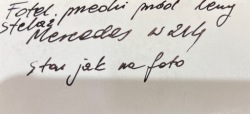 Fotel. przedni przód lewy
stelaż
Mercedes w 214
stan jak na foto